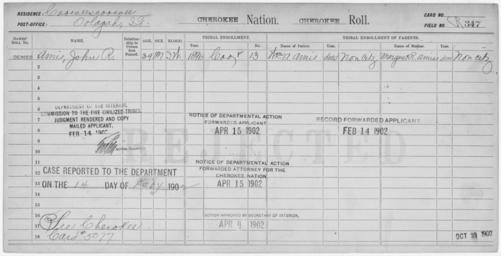 RESIDENCE: Cooweescoowee
POST-OFFICE: Oolagah, I.T.
CHEROKEE Nation. CHEROKEE Roll.
CARD NO.
FIELD NO. R 347
Dawes' Roll No. NAME. Relationship to Person First Named. AGE SEX BLOOD TRIBAL ENROLLMENT. Year. No. TRIBAL ENROLLMENT OF PARENTS. Name of Father. Year. Name of Mother. Year.
DENIED Amis, John R. 39 M 13 Wm N. Amis dead Non Citz Margaret R. Amis Non Citz
DEPARTMENT OF THE INTERIOR,
COMMISSION TO THE FIVE CIVILIZED TRIBES.
JUDGMENT RENDERED AND COPY
MAILED APPLICANT.
FEB 14 1902
NOTICE OF DEPARTMENTAL ACTION
FORWARDED APPLICANT
APR 15 1902
RECORD FORWARDED APPLICANT
FEB 14 1902
REJECTED
CASE REPORTED TO THE DEPARTMENT
ON THE 14 DAY OF Feby 1902
NOTICE OF DEPARTMENTAL ACTION
FORWARDED ATTORNEY FOR THE
CHEROKEE NATION
APR 15 1902
ACTION APPROVED BY SECRETARY OF INTERIOR.
APR 4 1902
See Cherokee
Card # 5077
OCT 1902